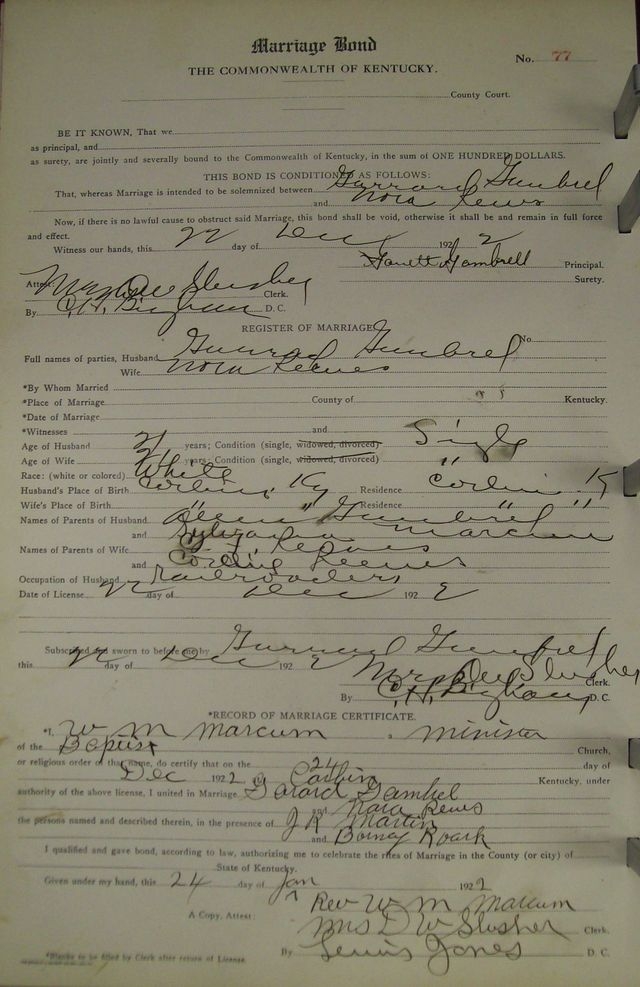 Marriage Bond
No. 77
THE COMMONWEALTH OF KENTUCKY.
County Court.
BE IT KNOWN, That we
as principal, and
as surety, are jointly and severally bound to the Commonwealth of Kentucky, in the sum of ONE HUNDRED DOLLARS.
THIS BOND IS CONDITIONED AS FOLLOWS:
That, whereas Marriage is intended to be solemnized between Garrard Gumbrel
and Nora Reeves
Now, if there is no lawful cause to obstruct said Marriage, this bond shall be void, otherwise it shall be and remain in full force
and effect.
Witness our hands, this 22 day of Dec 1922
Garrett Gambrell Principal.
Surety.
Attest: Mrs Dee Slusher Clerk.
By C. H. Bingham D. C.
REGISTER OF MARRIAGE
No.
Full names of parties, Husband Gumbrel
Wife Nora Reeves
*By Whom Married
*Place of Marriage County of Kentucky.
*Date of Marriage
*Witnesses and
Age of Husband 21 years; Condition (single, widowed, divorced) Single
Age of Wife 21 years; Condition (single, widowed, divorced) "
Race: (white or colored) White
Husband's Place of Birth Corbin, Ky Residence Corbin, K
Wife's Place of Birth " " Residence " "
Names of Parents of Husband Gumbrel
and Marcum
Names of Parents of Wife Reeves
and Reeves
Occupation of Husband Railroader
Date of License 22 day of Dec 1922
Subscribed and sworn to before me by Gumbrel
this 22 day of Dec 1922
Mrs Dee Slusher Clerk.
By C. H. Bingham D. C.
*RECORD OF MARRIAGE CERTIFICATE.
*I, W M Marcum a minister
of the Baptist Church,
or religious order of that name, do certify that on the 24 day of
Dec 1922 at Corbin Kentucky, under
authority of the above license, I united in Marriage Garard Gambel
and Nora Reves
the persons named and described therein, in the presence of J R Martin
and Roark
I qualified and gave bond, according to law, authorizing me to celebrate the rites of Marriage in the County (or city) of
State of Kentucky.
Given under my hand, this 24 day of Jan 1922
Rev W M Marcum
A Copy, Attest: Mrs D W Slusher Clerk.
By Lewis Jones D. C.
*Blanks to be filled by Clerk after return of License.